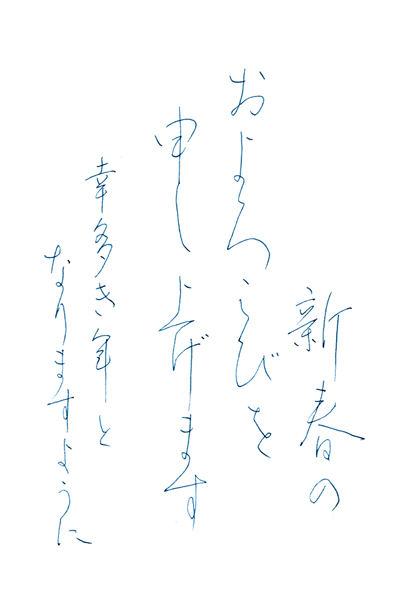 新春の
およろこびを
申し上げます
幸多き年と
なりますように